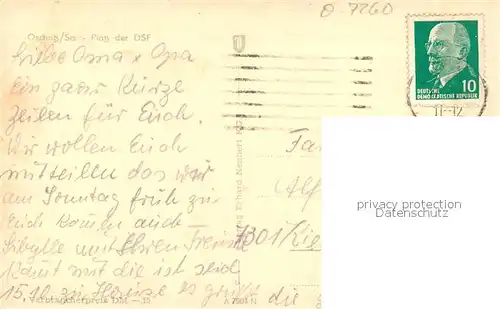 O-7260
Oschatz/Sa. - Platz der DSF
Liebe Oma u Opa
ein paar kurze
Zeilen für Euch.
Wir wollen Euch
mitteilen das wir
am Sonntag früh zu
Euch kommen auch
Sibylle mit Ihren Freund
kommt mit die ist seid
15.10 zu Hause es grüßt die
Verbraucherpreis DM -,15
A 7004 N
Verlag Erhard Neubert K
DEUTSCHE
DEMOKRATISCHE REPUBLIK
10
11-12
Fa
Alf
7301 Kie
privacy protection
Datenschutz